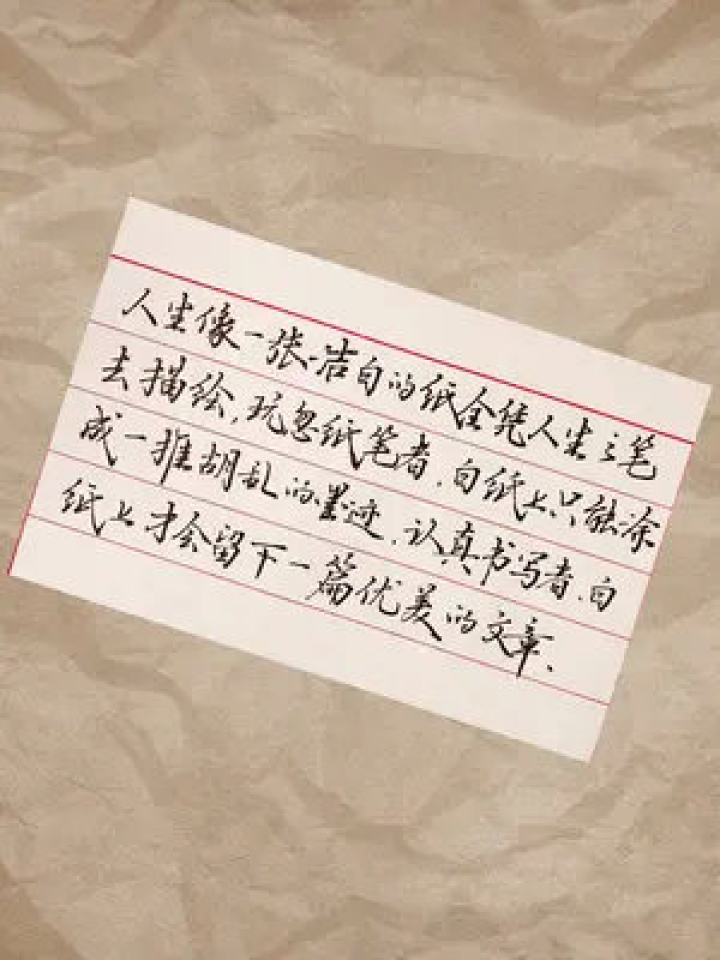 人生像一张洁白的纸全凭人生之笔
去描绘，玩忽纸笔者，白纸上只能涂
成一堆胡乱的墨迹，认真书写者，白
纸上才会留下一篇优美的文章、